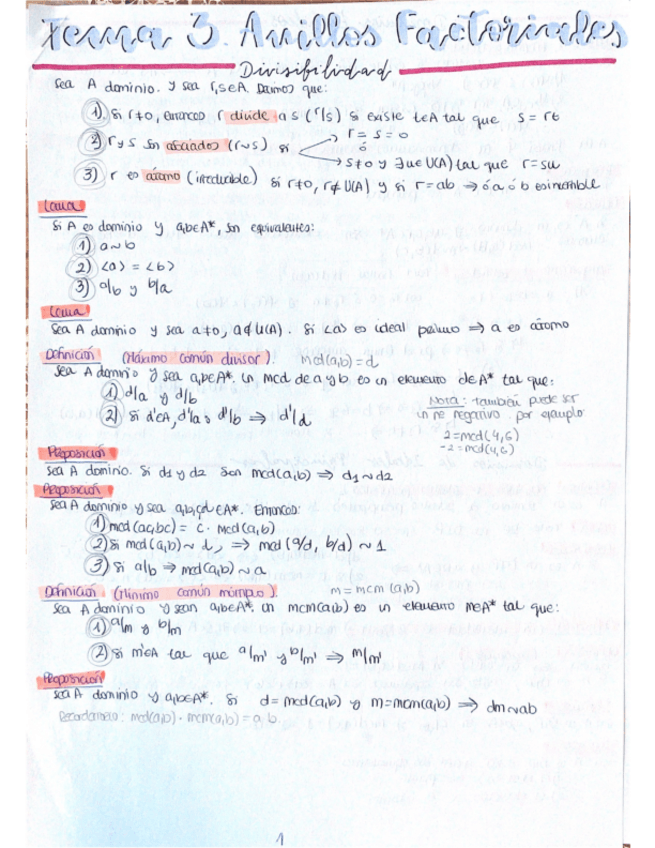 Tema 3. Anillos Factoriales
Divisibilidad
Sea A dominio. Y sea r,s∈A. Decimos que:
1). Si r≠0, entonces r divide a s (r|s) si existe t∈A tal que s = rt
2) r y s son asociados (r∼s) si
r = s = 0
ó
s≠0 y ∃u∈U(A) tal que r=su
3) r es átomo (irreducible) si r≠0, r∉U(A) y si r=ab ⇒ ó a ó b es invertible
Lema
Si A es dominio y a,b∈A*, son equivalentes:
1) a∼b
2) <a> = <b>
3) a|b y b|a
Lema
Sea A dominio y sea a≠0, a∉U(A). Si <a> es ideal primo ⇒ a es átomo
Definición (Máximo común divisor). mcd(a,b)=d
Sea A dominio y sea a,b∈A*. Un mcd de a y b es un elemento de A* tal que:
1) d|a y d|b
2) Si d'∈A, d'|a y d'|b ⇒ d'|d
Nota: también puede ser
un nº negativo. por ejemplo
2=mcd(4,6)
-2=mcd(4,6)
Proposición
Sea A dominio. Si d1 y d2 son mcd(a,b) ⇒ d1∼d2
Proposición
Sea A dominio y sea a,b,c,d∈A*. Entonces:
1) mcd(ac,bc) = c · mcd(a,b)
2) Si mcd(a,b)∼d, ⇒ mcd(a/d, b/d) ∼ 1
3) Si a|b ⇒ mcd(a,b)∼a
Definición (Mínimo común múltiplo). m = mcm(a,b)
Sea A dominio y sean a,b∈A*. Un mcm(a,b) es un elemento m∈A* tal que:
1) a|m y b|m
2) Si m'∈A tal que a|m' y b|m' ⇒ m|m'
Proposición
Sea A dominio y a,b∈A*. Si d=mcd(a,b) y m=mcm(a,b) ⇒ dm∼ab
Recordamos: mcd(a,b)·mcm(a,b)=a·b
1